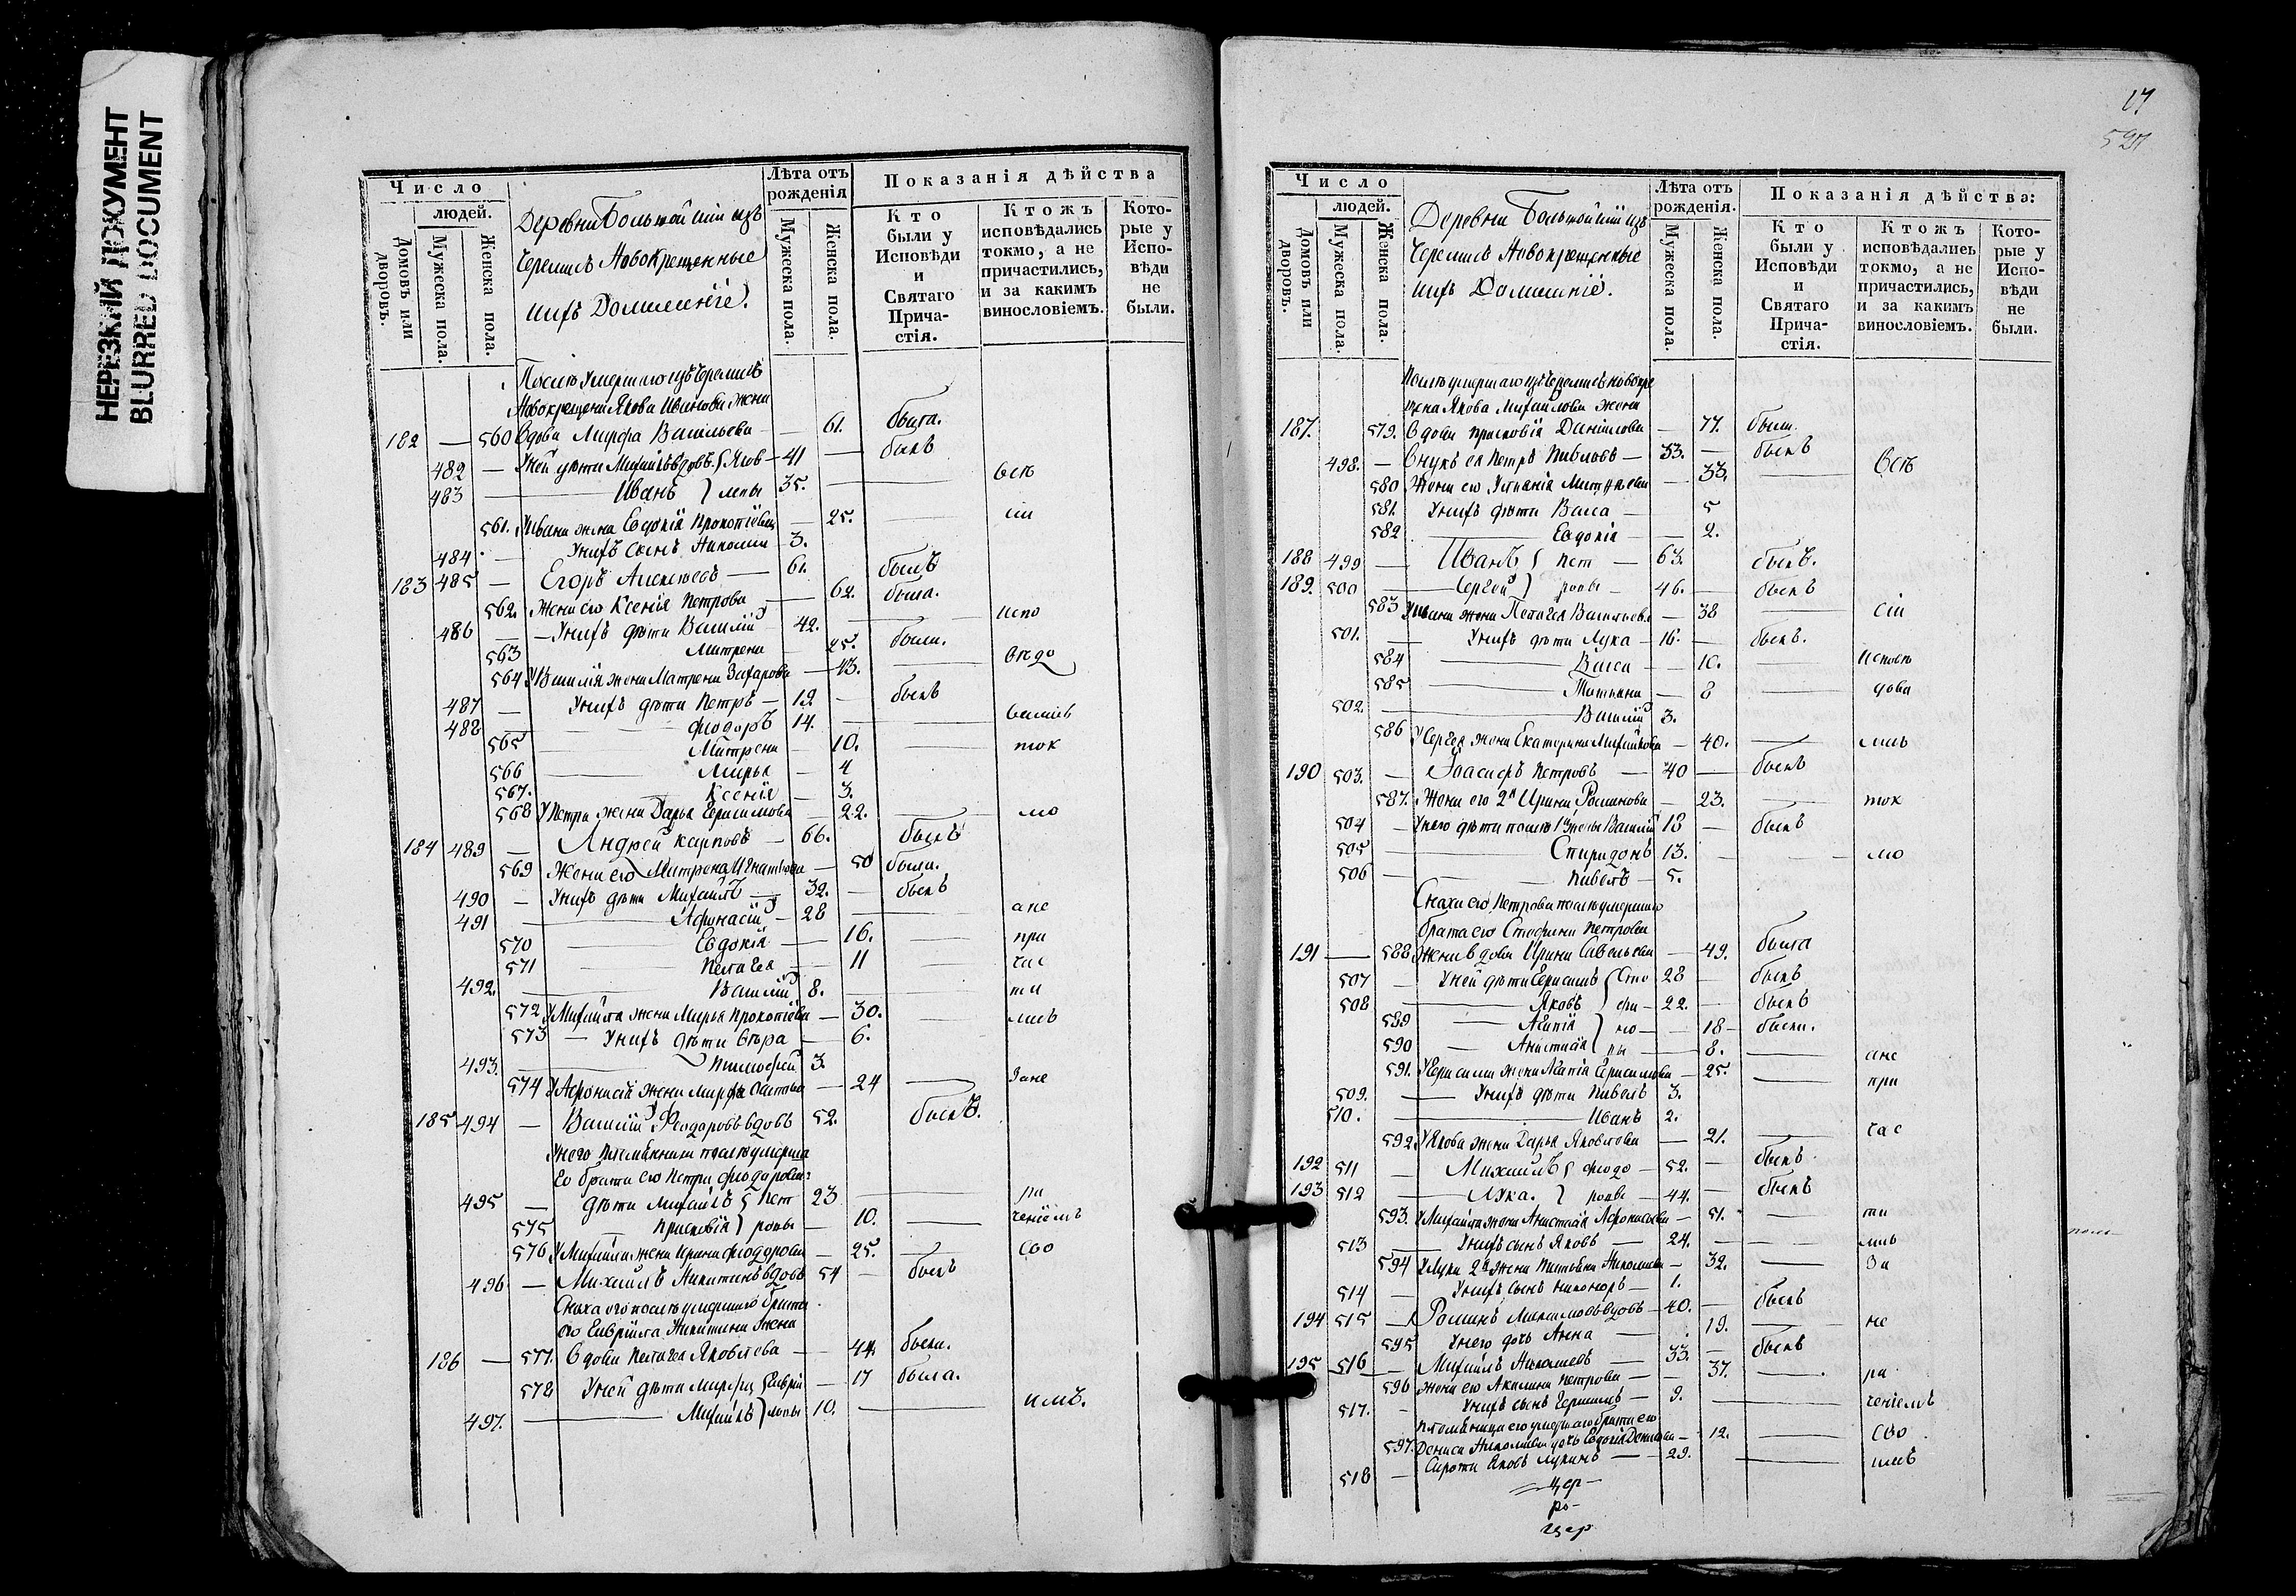 НЕРЕЗКИЙ ДОКУМЕНТ
BLURRED DOCUMENT
Число
людей.
Домовъ или дворовъ.
Мужеска пола.
Женска пола.
Деревни Большой изъ
Черемисъ Новокрещенные
ихъ Домашніе.
Лѣта отъ рожденія
Мужеска пола.
Женска пола.
Показанія дѣйства
Кто были у Исповѣди и Святаго Прича-стія.
Ктожъ исповѣдались токмо, а не причастились, и за какимъ винословіемъ.
Кото-рые у Испо-вѣди не были.
Послѣ умершаго изъ Черемисъ
Новокрещена Якова Иванова жена
182 — 560 Вдова Марфа Васильева — 61. была.
482 — У ней дѣти Михаилъ вдовъ Яков — 41 — былъ
483 — Иванъ левы 35. — всѣ
561. У Ивана жена Евдокія Прокопіева — 25. — сіи
484 — У нихъ сынъ Николай — 3.
183 485 — Егоръ Алексѣевъ — 61. былъ
562. Жена его Ксенія Петрова — 62. была.
486 — У нихъ дѣти Василій 42. — испо
563 Матрена — 25. была.
564 У Василія жена Матрена Захарова — 43. — вѣдо
487 — У нихъ дѣти Петръ — 19 — былъ
488 — Ѳеодоръ 14. — вались
565 Матрена — 10. — ток
566 — Марья — 4
567. — Ксенія — 3.
568 У Петра жена Дарья Герасимова — 22. — мо
184 489 — Андрей Карповъ — 66. былъ
569 Жена его Матрена Игнатьева — 50 была.
490 — У нихъ дѣти Михаилъ — 32. — былъ
491 — Аѳонасій — 28 — ане
570 — Евдокія — 16. — при
571 — Пелагея — 11 — час
492. — Василій 8. — ти
572 У Михайла жена Марья Прокопіева — 30. — лись
573 — У нихъ дѣти Вѣра — 6.
493. — Тимоѳей 3.
574 У Аѳонасія жена Марѳа — 24 — Зане
185 494 — Василій Ѳеодоровъ вдовъ 52. былъ.
У него племянники послѣ умерша
го брата его Петра Ѳеодорова:
495 — дѣти Михаилъ Пет 23 — ра
575 — Прасковія ровы — 10. — ченіемъ
576 У Михайла жена Ирина Ѳеодорова — 25. — сво
496 — Михаилъ Никитинъ вдовъ 54 — былъ
Сноха его послѣ умершаго брата
его Гаврила Никитина жена
186 — 577. Вдова Пелагея Яковлева — 44. была.
578 У ней дѣти Марфа Гаврі — 17 была.
497. — Михаилъ ловы 10. — имъ.
17
597
Число
людей.
Домовъ или дворовъ.
Мужеска пола.
Женска пола.
Деревни Большой изъ
Черемисъ Новокрещенные
ихъ Домашніе.
Лѣта отъ рожденія.
Мужеска пола.
Женска пола.
Показанія дѣйства:
Кто были у Исповѣди и Святаго Прича-стія.
Ктожъ исповѣдались токмо, а не причастились, и за какимъ винословіемъ.
Кото-рые у Испо-вѣди не были.
Послѣ умершаго изъ Черемисъ новокре
щена Якова Михайлова жена
187. 579. Вдова Прасковія Даніилова — 77. была.
498. — Внукъ ея Петръ Павловъ — 33. — былъ
580 Жена его Уліянія — 33. — Всѣ
581. У нихъ дѣти Васса — 5
582 — Евдокія — 2.
188 499 — Иванъ Пет — 63. былъ.
189. 500 — Сергей ровы — 46. — былъ
583 У Ивана жена Пелагея Васильева — 38 — сіи
501. — У нихъ дѣти Лука — 16. — былъ.
584 — Васса — 10. — исповѣ
585 — Татьяна — 8 — дова
502. — Василій 3.
586 У Сергея жена Екатерина Михайлова — 40. — лись
190 503. — Петровъ — 40 — былъ
587. Жена его 2я Ирина Романова — 23. — ток
504 — У него дѣти послѣ 1й жены Василій 18 — былъ
505 — Спиридонъ 13. — мо
506 — Павелъ — 5.
Сноха его Петрова послѣ умершаго
брата его Стефана Петрова
191 — 588 жена вдова Ирина Савельева — 49. была
507 — У ней дѣти Герасимъ Сте 28 — былъ
508 — Яковъ фа — 22. — былъ
589 — Агапія но — 18 — была.
590 — Анастасія вы — 8. — ане
591. У Герасима жена Агапія Герасимова — 25. — при
509. — У нихъ дѣти Павелъ 3.
510. — Иванъ 2.
592. У Якова жена Дарья Яковлева — 21. — час
192 511 — Михаилъ Ѳеодо — 52. — былъ
193 512 — Лука. ровы — 44. — былъ
593. У Михайла жена Анастасія Аѳонасьева — 51. — ти
513 — У нихъ сынъ Яковъ — 24. — лись
594 У Луки 2я жена Татьяна Николаева — 32. — За
514 — У нихъ сынъ Никоноръ — 1.
194 515 — Романъ Максимовъ вдовъ — 40. — былъ
595 У него дочь Анна — 19. — не
195 516 — Михаилъ Николаевъ — 33. — былъ
596 Жена его Акилина Петрова — 37. — ра
517. — У нихъ сынъ Герасимъ — 9. — ченіемъ
Племянница его умершаго брата его
597. Дениса Николаева дочь Евдокія Денисова — 12. — сво
518 — Сирота Яковъ Лукинъ — 29. — имъ